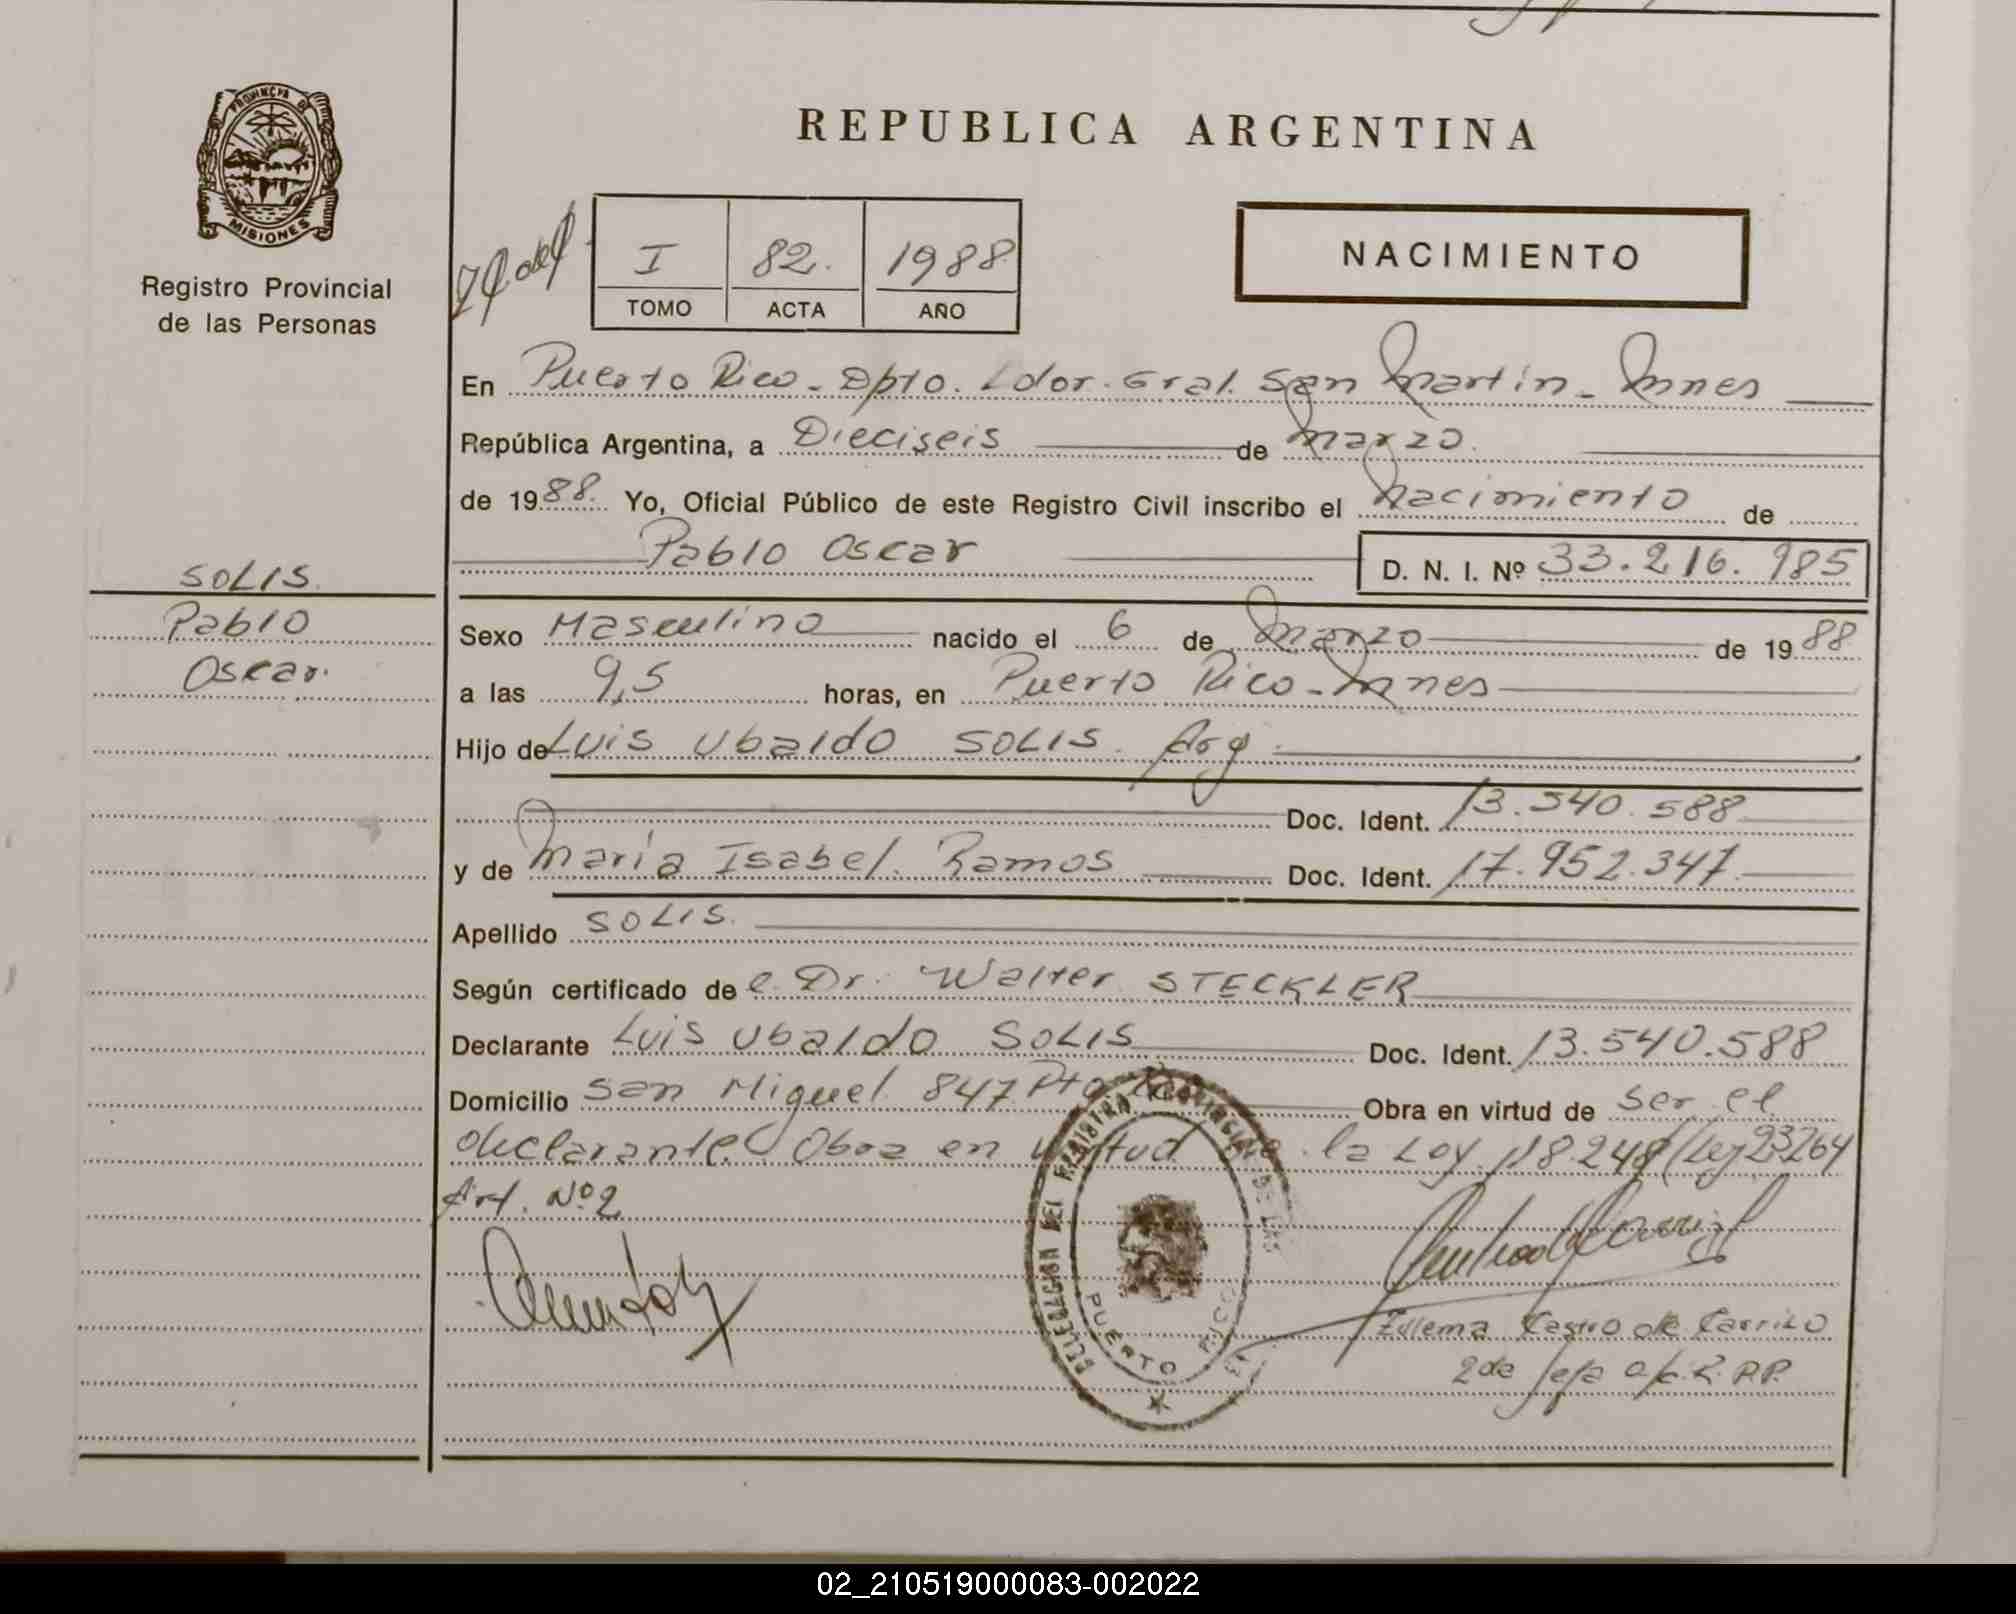 PROVINCIA DE
MISIONES
Registro Provincial
de las Personas
SOLIS.
Pablo
Oscar.
REPUBLICA ARGENTINA
I 82. 1988
TOMO ACTA AÑO
NACIMIENTO
En Puerto Rico - Dpto. Ldor. Gral. San Martín - Mnes
República Argentina, a Dieciseis de Marzo.
de 1988. Yo, Oficial Público de este Registro Civil inscribo el Nacimiento de
Pablo Oscar D. N. I. Nº 33.216.985
Sexo Masculino nacido el 6 de Marzo de 1988
a las 9,5 horas, en Puerto Rico - Mnes
Hijo de Luis Ubaldo SOLIS. Arg.
Doc. Ident. 13.540.588
y de María Isabel Ramos Doc. Ident. 17.952.347
Apellido SOLIS.
Según certificado de e. Dr. Walter STECKLER
Declarante Luis Ubaldo SOLIS Doc. Ident. 13.540.588
Domicilio San Miguel 847 Pto Obra en virtud de ser el
declarante. Obra en virtud de la Ley 18248 (Ley 23264
Art. Nº 2
DELEGACION DEL REGISTRO PROVINCIAL DE LAS
PUERTO RICO
Zulema Castro de Carrizo
2da Jefa a/c. R.P.P.
02_210519000083-002022